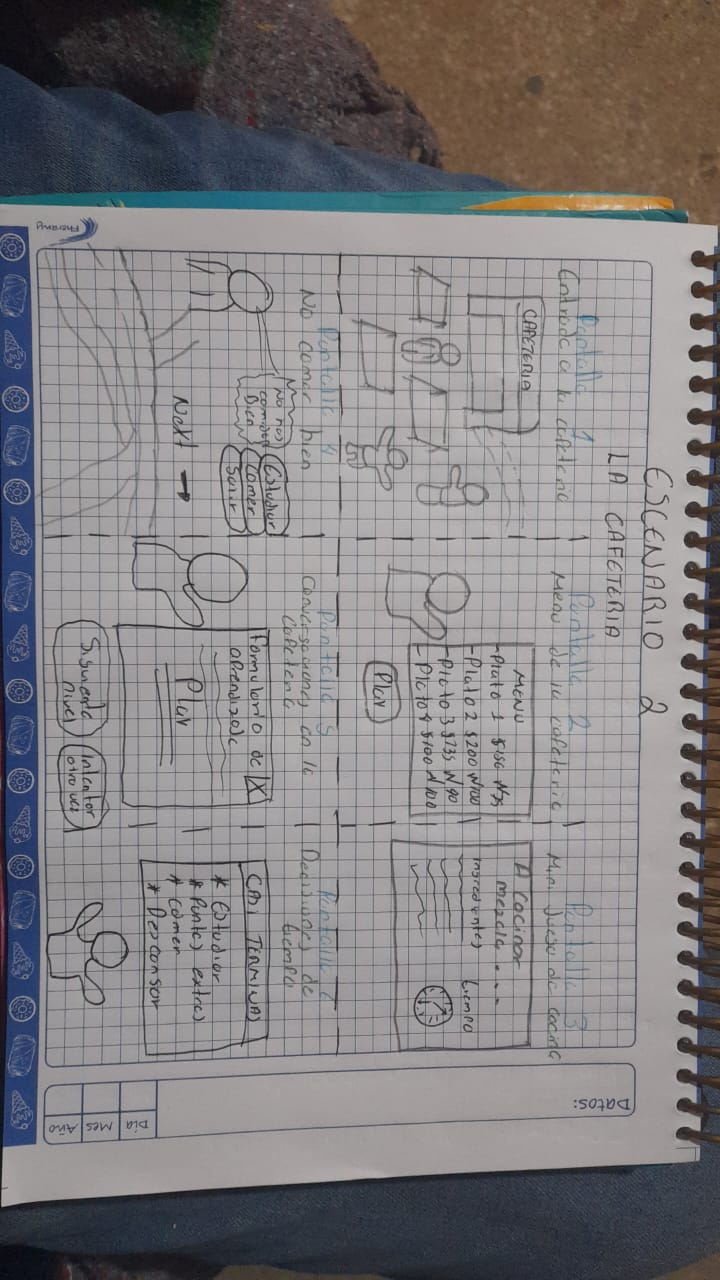 ESCENARIO 2
LA CAFETERIA
Pantalla 1
Entrada a la cafeteria
CAFETERIA
Pantalla 2
Menu de la cafeteria
MENU
-Plato 1 $150 N75
-Plato 2 $200 N100
-Plato 3 $235 N90
-Plato 4 $100 N100
Play
Pantalla 3
Mini juego de cocina
A cocinar
mezcla...
Ingredientes tiempo
Pantalla 4
No comer bien
No has
comido
bien
Estudiar
Comer
Salir
Next →
Pantalla 5
Conversaciones en la
cafeteria
Formulario de X
aprendizaje
Play
Siguiente
nivel
Intentar
otra vez
Pantalla 6
Decisiones de
tiempo
CASI TERMINAS
* Estudiar
* Puntos extras
* Comer
* Descansar
Datos:
Dia
Mes
Año